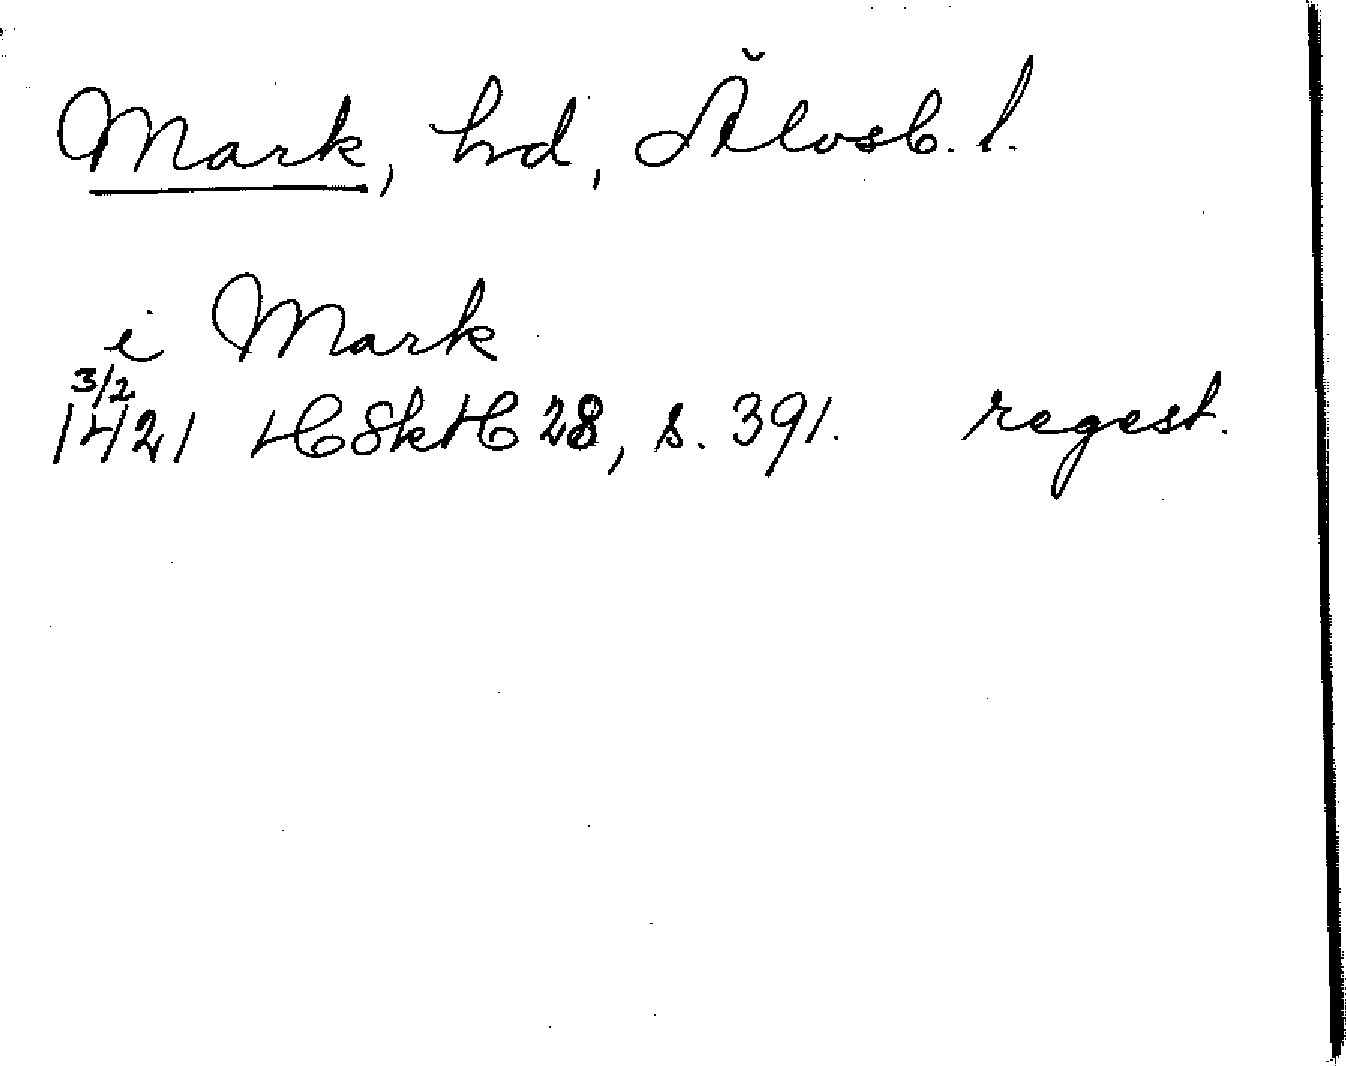 Mark, hd, Älvsb. l.
i Mark
3/2
1421 HSkH 28, s. 391. regest.